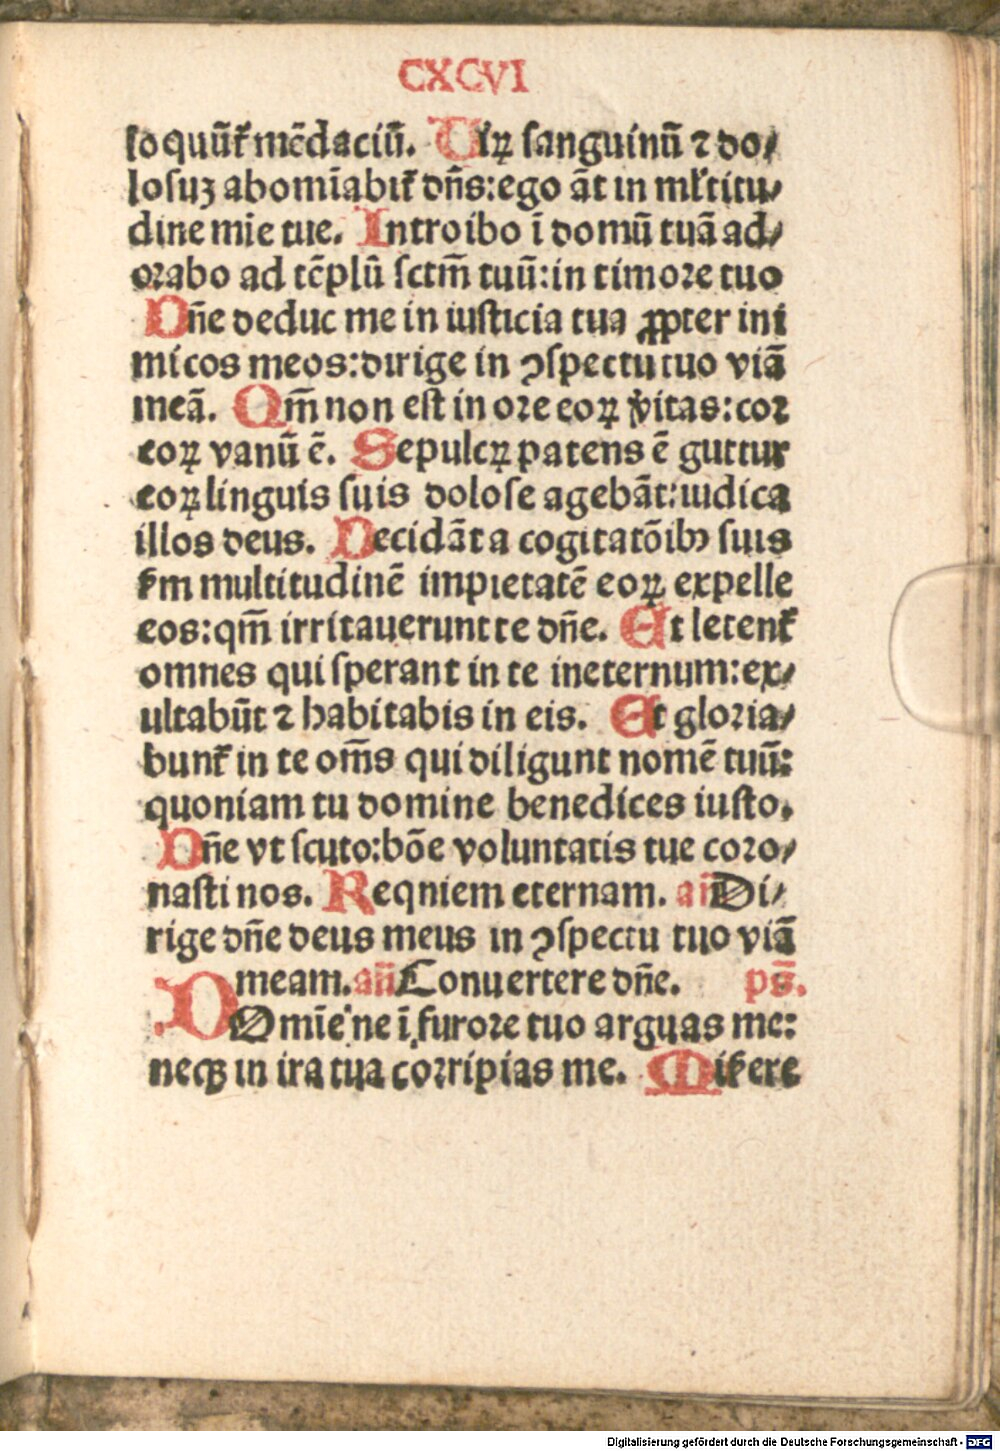 CXCVI
loquūt᷑ mēdaciū. Uiꝝ sanguinū ⁊ do/
losuꝫ abomīabit᷑ dn̄s:ego āt in ml̄titu/
dine mie tue. Introibo ī domū tuā ad/
orabo ad tēplū sctm̄ tuū:in timore tuo
Dn̄e deduc me in iusticia tua ꝓpter ini
micos meos:dirige in ꝯspectu tuo viā
meā. Qm̄ non est in ore eoꝝ v̓itas:cor
eoꝝ vanū ē. Sepulcꝝ patens ē guttur
eoꝝ linguis suis dolose agebāt:iudica
illos deus. Decidāt a cogitatōibꝰ suis
ẜm multitudinē impietatē eoꝝ expelle
eos:qm̄ irritauerunt te dn̄e. Et letent᷑
omnes qui sperant in te ineternum:ex/
ultabūt ⁊ habitabis in eis. Et gloria/
bunt᷑ in te om̄s qui diligunt nomē tuū:
quoniam tu domine benedices iusto.
Dn̄e vt scuto:bōe voluntatis tue coro/
nasti nos. Reqniem eternam. an̄ Di/
rige dn̄e deus meus in ꝯspectu tuo viā
meam. an̄ Conuertere dn̄e. ps̄.
DOmīe ne ī furore tuo arguas me:
neqꝫ in ira tua corripias me. Miẜere
Digitalisierung gefördert durch die Deutsche Forschungsgemeinschaft - DFG